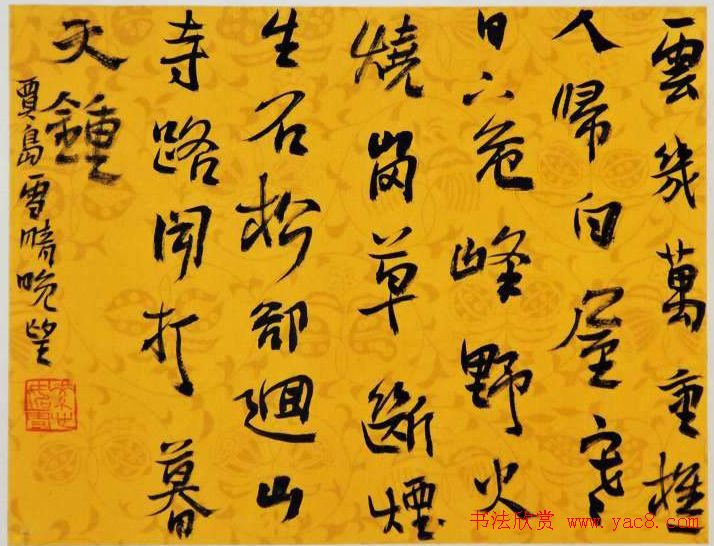 雲幾萬重樵
人歸白屋寒
日下危峰野火
燒崗草斷煙
生石松却迴山
寺路聞打暮
天鍾
賈島雪晴晚望
书法欣赏 www.yac8.com